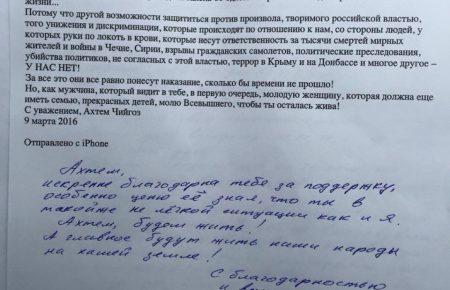 жизни...
Потому что другой возможности защититься против произвола, творимого российской властью,
того унижения и дискриминации, которые происходят по отношению к нам, со стороны людей, у
которых руки по локоть в крови, которые несут ответственность за тысячи смертей мирных
жителей и войны в Чечне, Сирии, взрывы гражданских самолетов, политические преследования,
убийства политиков, не согласных с этой властью, террор в Крыму и на Донбассе и многое другое –
У НАС НЕТ!
За все это они все равно понесут наказание, сколько бы времени не прошло!
Но, как мужчина, который видит в тебе, в первую очередь, молодую женщину, которая должна еще
иметь семью, прекрасных детей, молю Всевышнего, чтобы ты осталась жива!
С уважением, Ахтем Чийгоз
9 марта 2016
Отправлено с iPhone
Ахтем,
искренне благодарна тебе за поддержку,
особенно ценю её зная, что ты в
такой же не лёгкой ситуации как и я.
Ахтем, будем жить!
А главное будут жить наши народы
на нашей земле!
С благодарностью
и